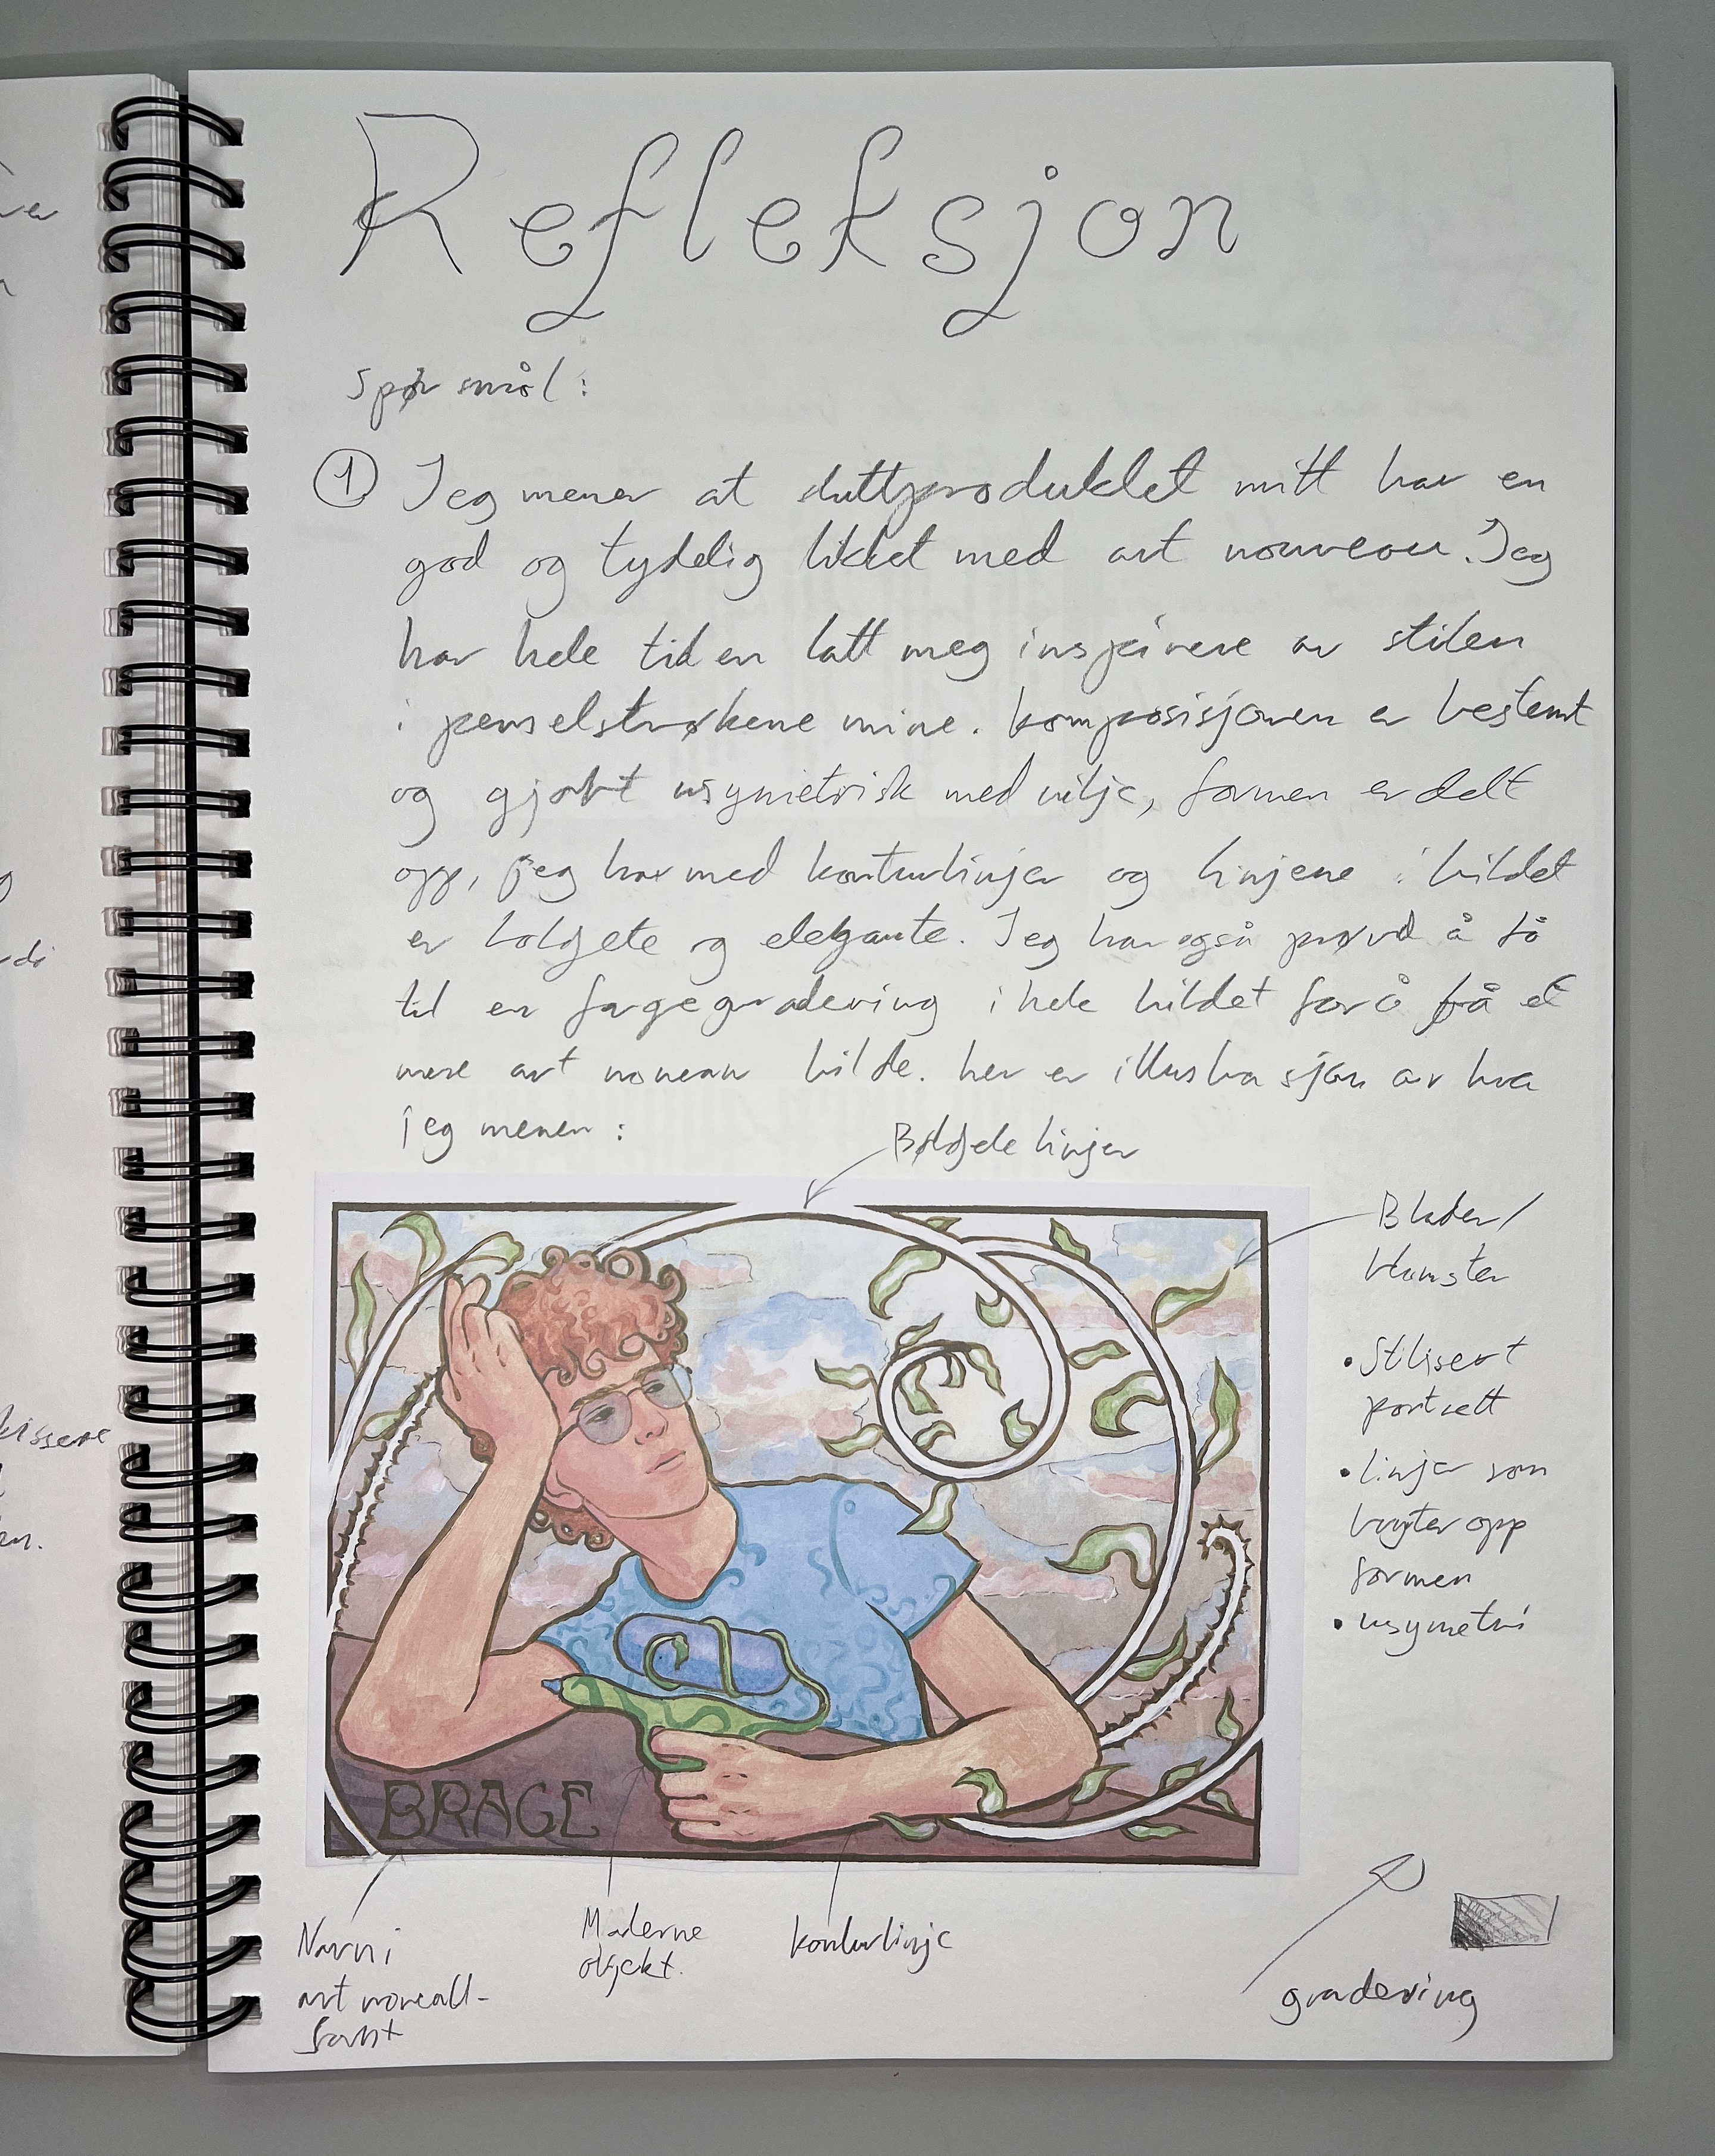 Refleksjon
Spørsmål:
1 Jeg mener at sluttproduktet mitt har en
god og tydelig likhet med art nouveau. Jeg
har hele tiden latt meg inspirere av stilen
i penselstrøkene mine. komposisjonen er bestemt
og gjort usymetrisk med vilje, formen er delt
opp, jeg har med konturlinjer og linjene i bildet
er bølgete og elegante. Jeg har også prøvd å få
til en fargegradering i hele bildet for å få et
mere art noveau bilde. her er illustrasjon av hva
jeg mener:
Bølgete linjer
Blader/
blomster
• Stilisert
portrett
• linjer som
bryter opp
formen
• usymetri
BRAGE
Navn i
art noveau-
font
Moderne
objekt.
konturlinje
gradering
skissere